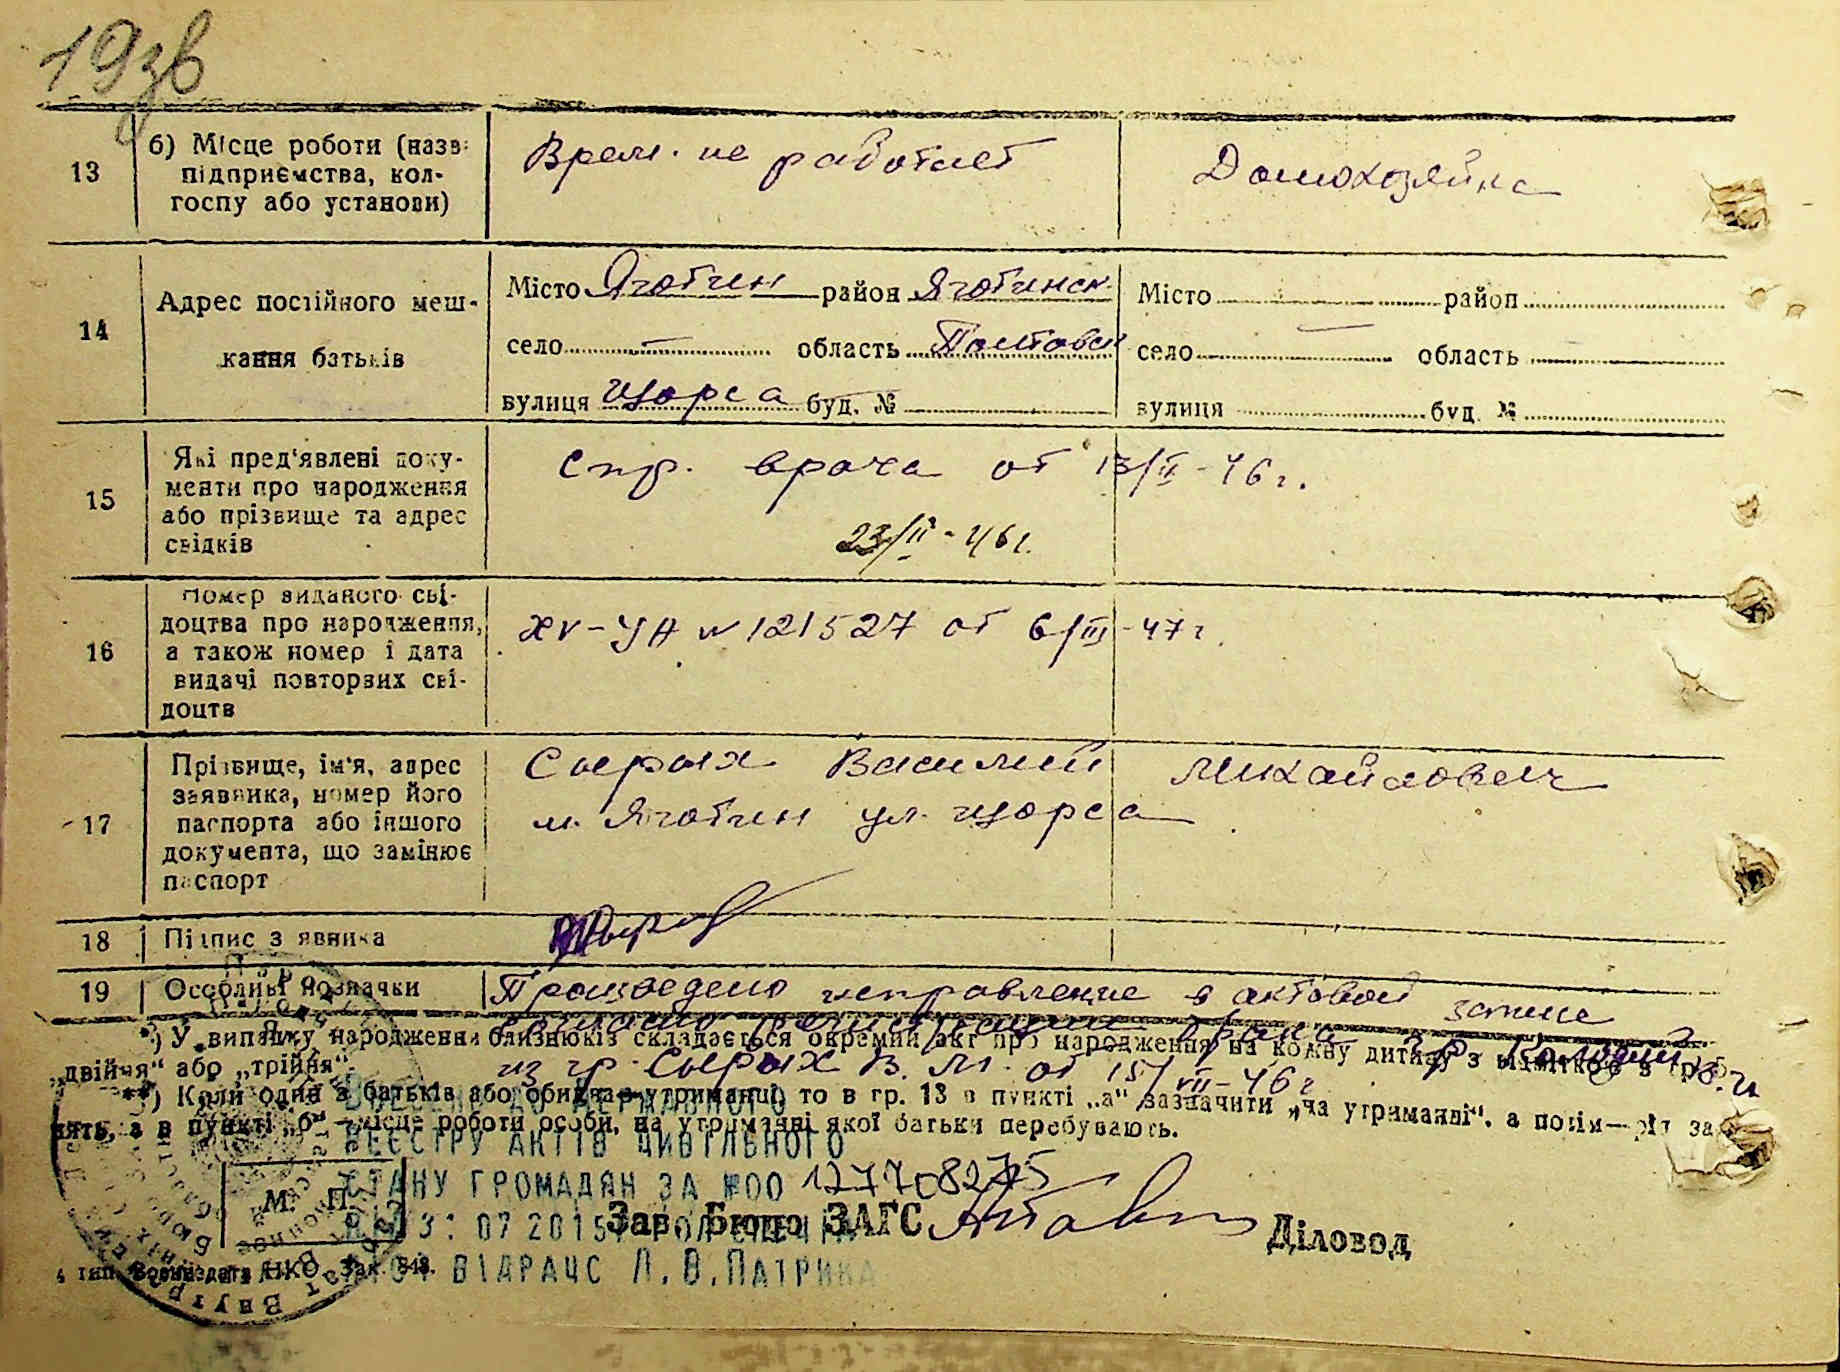 19зв
13
б) Місце роботи (назв:
підприємства, кол-
госпу або установи)
Врем. не работает
Домохозяйка
14
Адрес постійного меш-
кання батьків
Місто Яготин район Яготинск.
село — область Полтавск
вулиця Щорса буд. №
Місто район
село — область
вулиця буд. №
15
Які пред'явлені доку-
менти про народження
або прізвище та адрес
свідків
Спр. врача от 13/II-46 г.
23/II-46 г.
16
Номер виданого сві-
доцтва про народження,
а також номер і дата
видачі повторних сві-
доцтв
XV-УН № 121527 от 6/III-47 г.
17
Прізвище, ім'я, адрес
заявника, номер його
паспорта або іншого
документа, що замінює
паспорт
Сырых Василий Михайлович
м. Яготин ул. Щорса
18
Підпис заявника
19
Особливі позначки
Произведено исправление в актовой записи
*) У випадку народження близнюків складається окремий акт про народження на кожну дитину з
„двійня" або „трійня".
из гр. Сырых В. М. от 15/VII-46 г
**) Коли один з батьків або обидва на утриманні, то в гр. 13 в пункті „а" зазначити „на утриманні", а потім—рід за-
нять, а в пункті „б"—місце роботи особи, на утриманні якої батьки перебувають.
ВНЕСЕНО ДО ДЕРЖАВНОГО
РЕЄСТРУ АКТІВ ЦИВІЛЬНОГО
СТАНУ ГРОМАДЯН ЗА №00
М. П.
Зав. Бюро ЗАГС
Діловод
ВІДРАЦС Л.В.ПАТРИКА